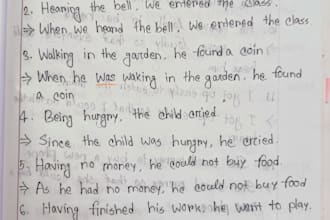 2. Hearing the bell, we entered the class.
⇒ When we heard the bell, we entered the class
3. Walking in the garden, he found a coin
⇒ When he was waking in the garden, he found
a coin
4. Being hungry, the child cried.
⇒ Since the child was hungry, he cried.
5. Having no money, he could not buy food.
⇒ As he had no money, he could not buy food
6. Having finished his work, he went to play.